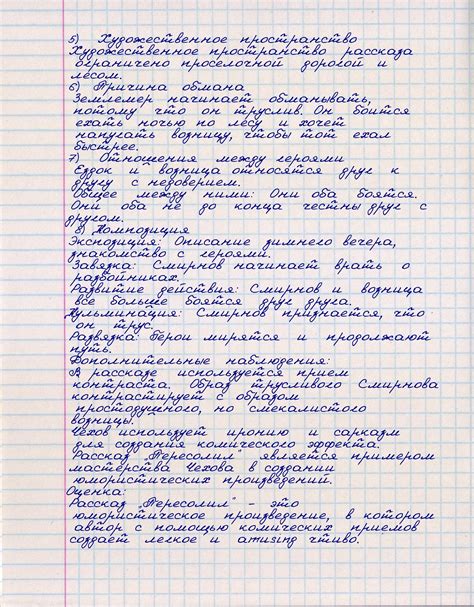 5) Художественное пространство
Художественное пространство рассказа
ограничено проселочной дорогой и
лесом.
6) Причина обмана
Землемер начинает обманывать,
потому что он труслив. Он боится
ехать ночью по лесу и хочет
напугать возницу, чтобы тот ехал
быстрее.
7) Отношения между героями
Ездок и возница относятся друг к
другу с недоверием.
Общее между ними: Они оба боятся.
Они оба не до конца честны друг с
другом.
8) Композиция
Экспозиция: Описание зимнего вечера,
знакомство с героями.
Завязка: Смирнов начинает врать о
разбойниках.
Развитие действия: Смирнов и возница
все больше боятся друг друга.
Кульминация: Смирнов признается, что
он трус.
Развязка: Герои мирятся и продолжают
путь.
Дополнительные наблюдения:
В рассказе используется прием
контраста. Образ трусливого Смирнова
контрастирует с образом
простодушного, но смекалистого
возницы.
Чехов использует иронию и сарказм
для создания комического эффекта.
Рассказ „Пересолил" является примером
мастерства Чехова в создании
юмористических произведений.
Оценка:
Рассказ „Пересолил" - это
юмористическое произведение, в котором
автор с помощью комических приемов
создает легкое и amusing чтиво.